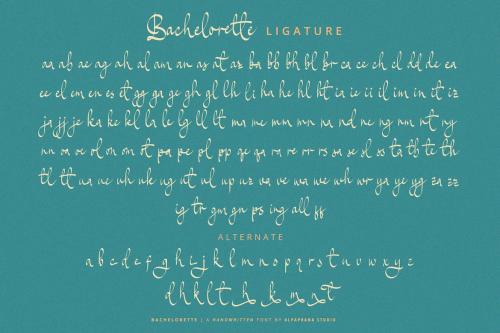 Bachelorette LIGATURE
aa ab ae ag ah al am an as at az ba bb bh bl br ca ce ch cl dd de ea
ee el em en es et gg ga ge gh gl lh li ha he hl ht ia ie ii il im in it iz
ja jj je ka ke kl la le lg ll lt ma me mm mn na nd ne ng nm nt ny
nn oa oe ol on om ot pa pe pl pp qe qa ra re rr rs sa se sl ss ta tb te th
tl tt ua ue uh uk ug ut ul up uz va ve wa we wh wr ya ye yg za zz
ig tr gm gn ps ing all ff
ALTERNATE
a b c d e f g h i j k l m n o p q r s t u v w x y z
d h k l t
BACHELORETTE | A HANDWRITTEN FONT BY ALPAPRANA STUDIO